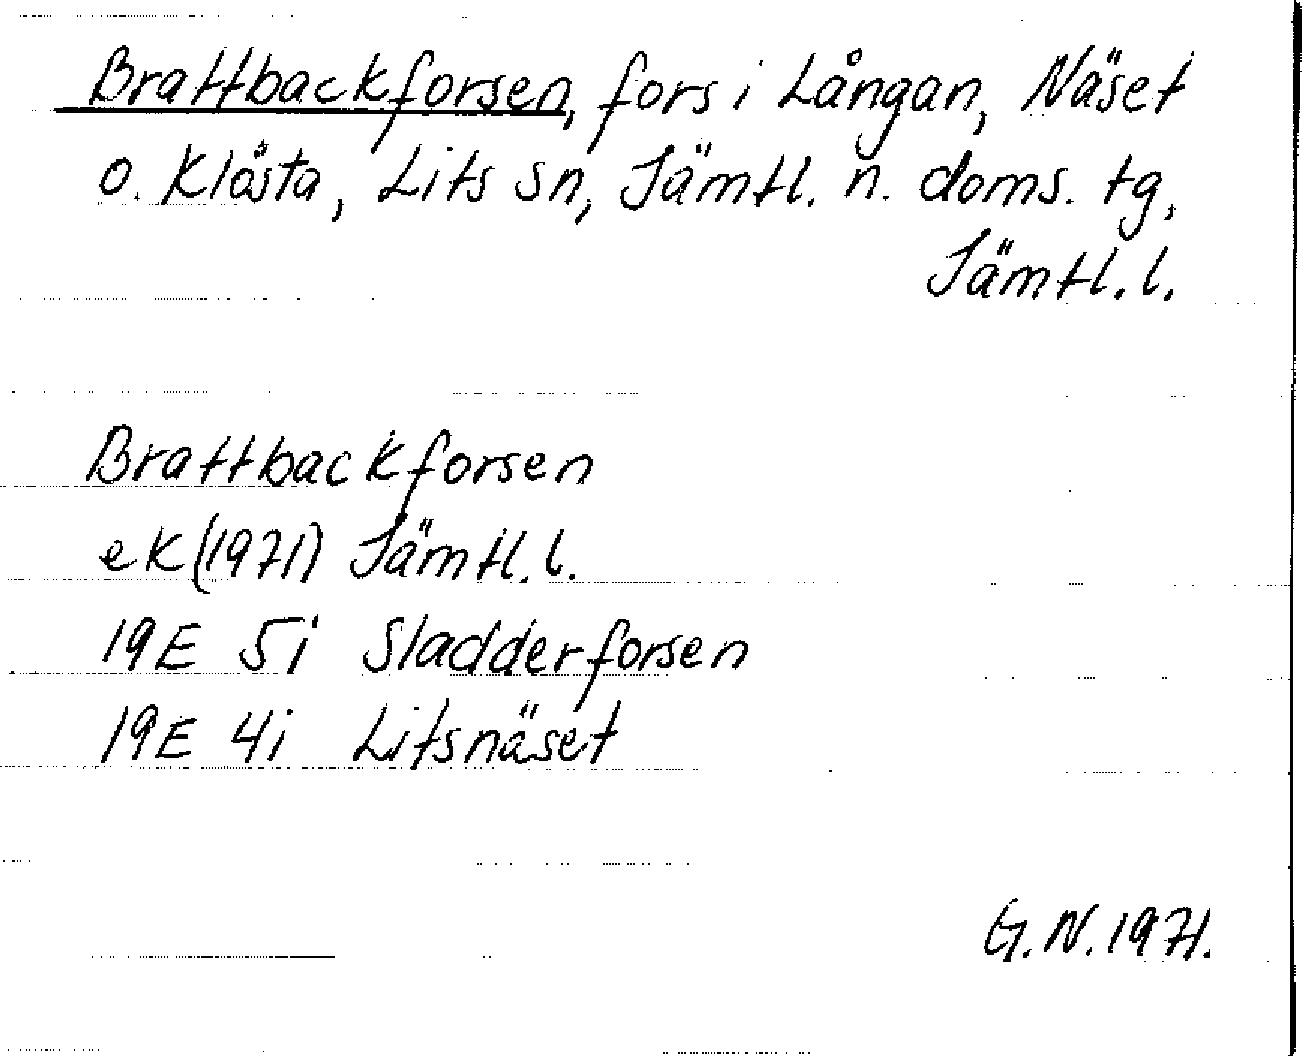 Brattbackforsen, fors i Långan, Näset
o. Klösta, Lits sn, Jämtl. n. doms. tg,
Jämtl. l.
Brattbackforsen
ek (1971) Jämtl. l.
19E 5i Sladderforsen
19E 4i Litsnäset
G.N. 1971.